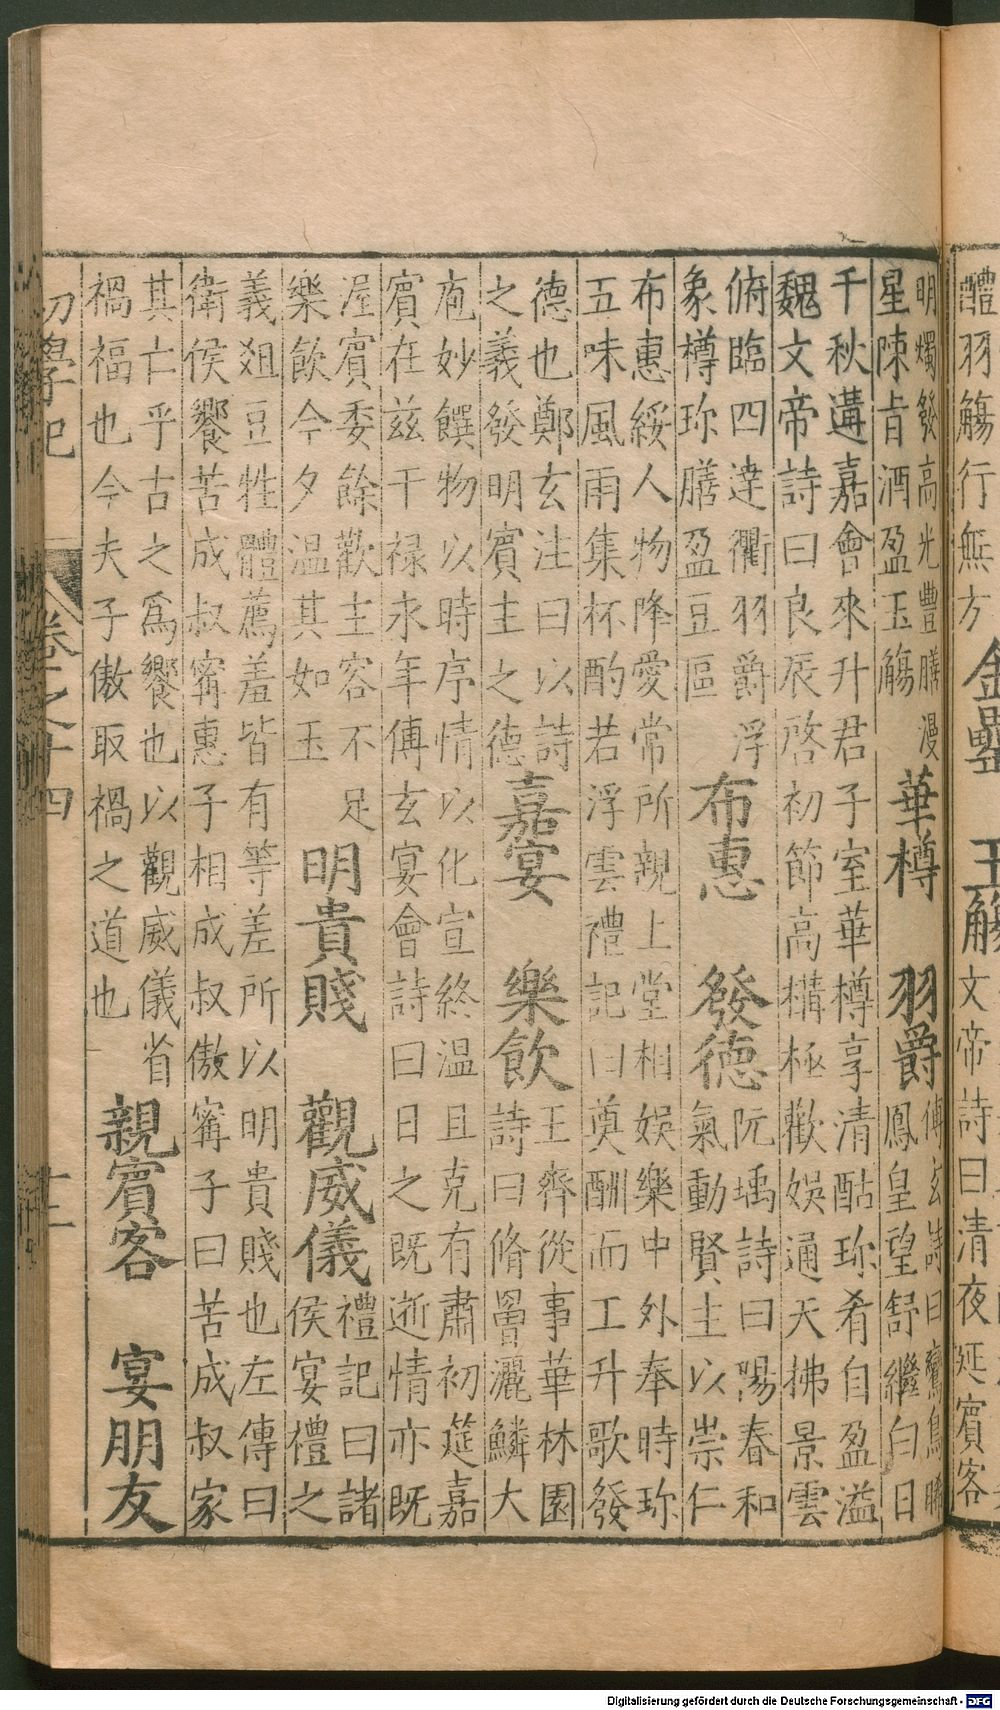 醴羽觴行無方 金罍 玉觴 文帝詩曰清夜延賓客
明燭發高光豐膳漫
星陳旨酒盈玉觴
華樽 羽爵
傅玄詩曰鸞鳥晞
鳳皇望舒繼白日
千秋遘嘉會來升君子室華樽享清酤珍肴自盈溢
魏文帝詩曰良辰啓初節高構極歡娛通天拂景雲
俯臨四達衢羽爵浮
象樽珍膳盈豆區
布惠 發德
阮瑀詩曰陽春和
氣動賢主以崇仁
布惠綏人物降愛常所親上堂相娛樂中外奉時珍
五味風雨集杯酌若浮雲禮記曰奠酬而工升歌發
德也鄭玄注曰以詩
之義發明賓主之德
嘉宴 樂飲
王齊從事華林園
詩曰脩罾灑鱗大
庖妙饌物以時序情以化宣終温且克有肅初筵嘉
賓在兹干禄永年傅玄宴會詩曰日之既逝情亦既
渥賓委餘歡主容不足
樂飲今夕温其如玉
明貴賤 觀威儀
禮記曰諸
侯宴禮之
義俎豆牲體薦羞皆有等差所以明貴賤也左傳曰
衛侯饗苦成叔甯惠子相成叔傲甯子曰苦成叔家
其亡乎古之爲饗也以觀威儀省
禍福也今夫子傲取禍之道也
親賓客 宴朋友
初學記 卷之十四 十二
Digitalisierung gefördert durch die Deutsche Forschungsgemeinschaft - DFG